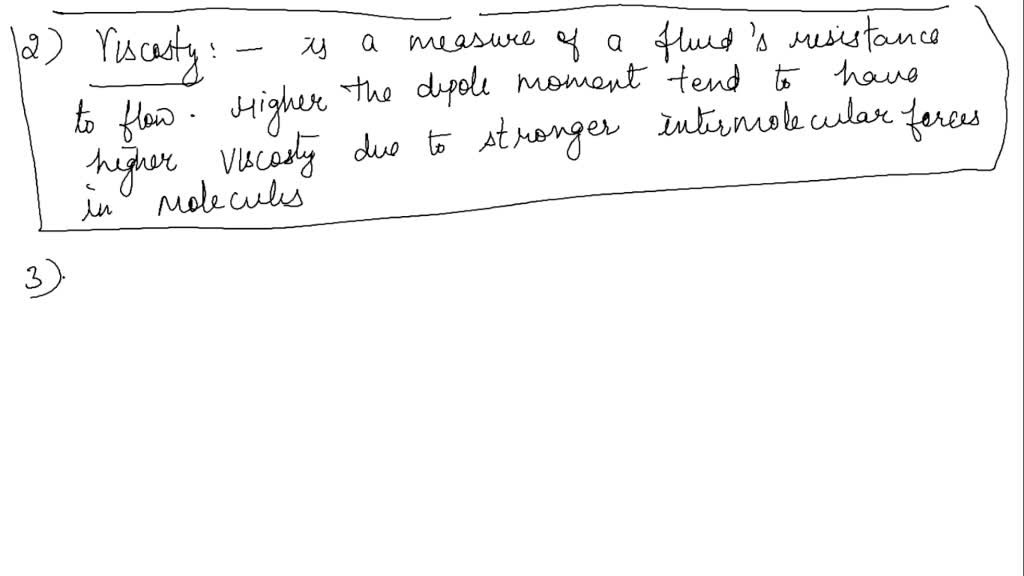 2) Viscosty: – is a measure of a fluid's resistance
to flow. Higher the dipole moment tend to have
higher viscosty due to stronger intermolecular forces
in molecules
3).